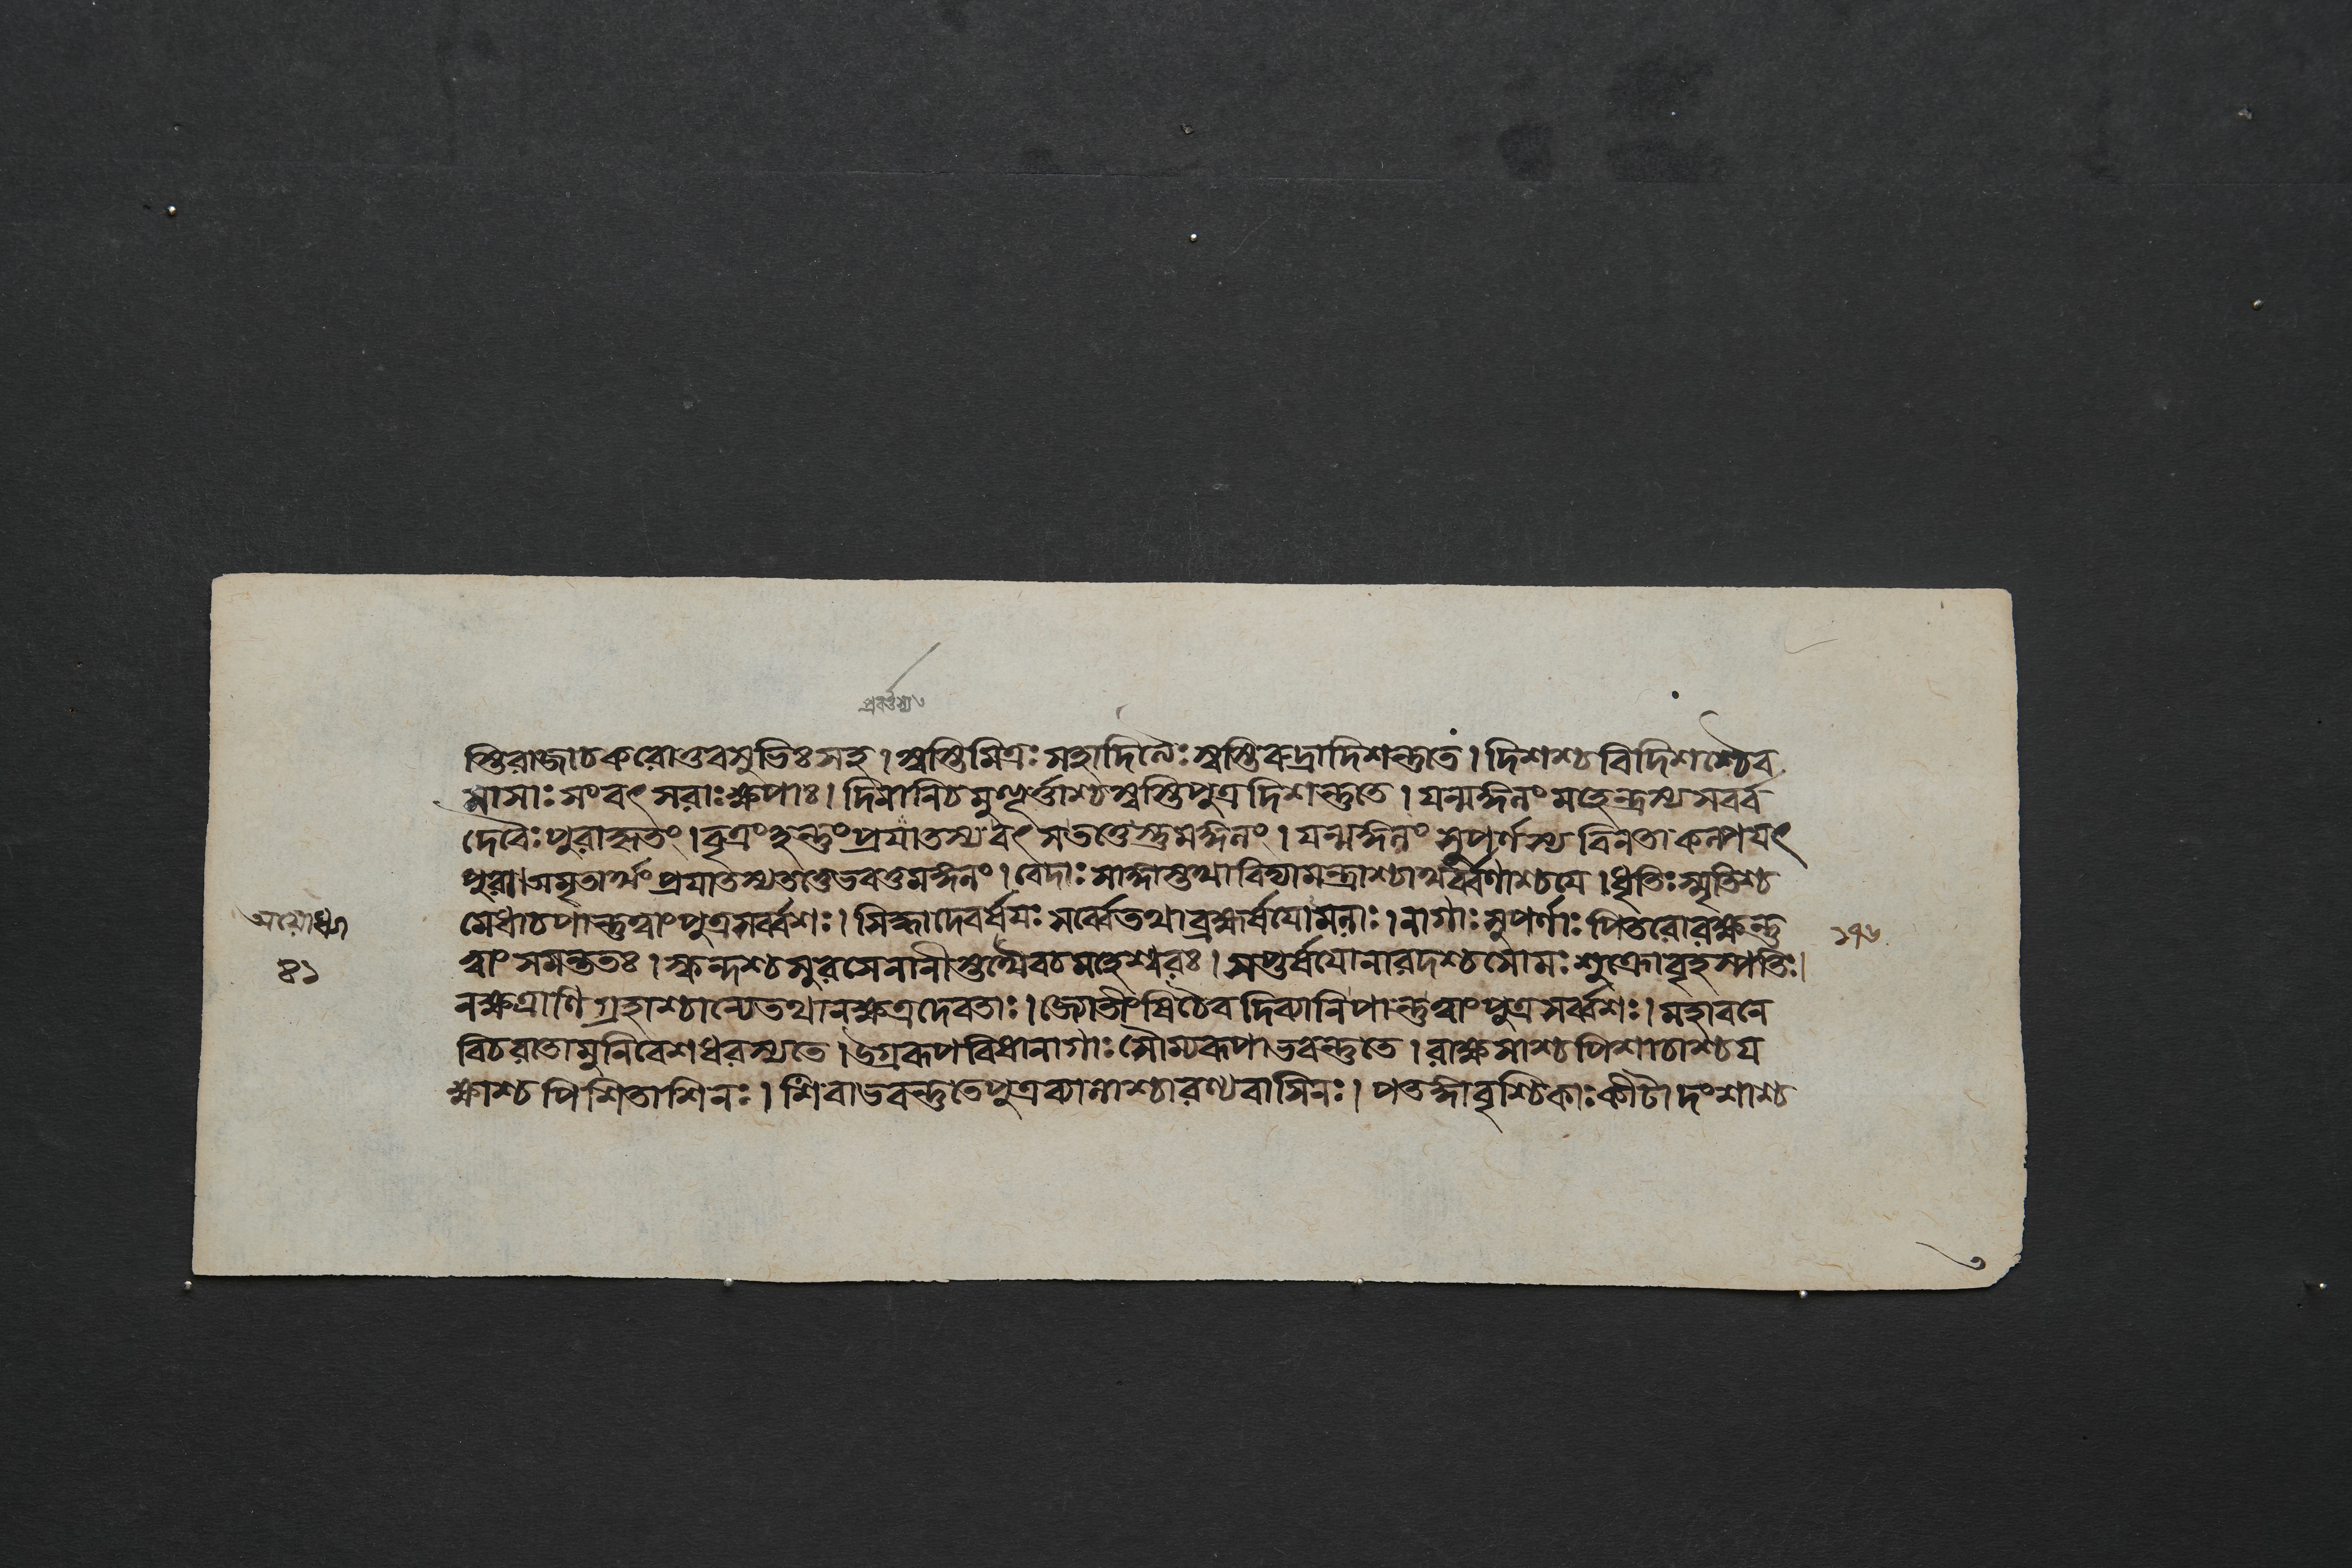 প্রবর্ত্তস্য
স্তিরাজাচকরোতুবসুভিঃসহ। স্বস্তিমিত্রঃসহাদিত্যৈঃস্বস্তিরুদ্রাদিশন্তুতে। দিশশ্চবিদিশশ্চৈব
মাসাঃসংবৎসরাঃক্ষপাঃ। দিনানিচমুহূর্ত্তাশ্চস্বস্তিপুত্রদিশন্তুতে। যন্মঙ্গলং মহেন্দ্রস্যসর্ব্ব
দেবৈঃপুরাকৃতং। বৃত্রংহন্তুংপ্রযাতস্যবৎসতত্তেস্তুমঙ্গলং। যন্মঙ্গলং সুপর্ণস্যবিনতাকল্পযৎ
পুরা। অমৃতার্থংপ্রযাতস্যতত্তেভবতুমঙ্গলং। বেদাঃসাঙ্গাস্তথাবিদ্যামন্ত্রাশ্চাথর্ব্বণাশ্চযে। ধৃতিঃস্মৃতিশ্চ
মেধাচপান্তুত্বাংপুত্রসর্ব্বশঃ। সিদ্ধাদেবর্ষযঃসর্ব্বেতথাব্রহ্মর্ষযোমলাঃ। নাগাঃসুপর্ণাঃপিতরোরক্ষন্তু
অযোধ্যা
৪১
১৭৬
ত্বাংসমন্ততঃ। স্কন্দশ্চসুরসেনানীস্তথৈবচমহেশ্বরঃ। সপ্তর্ষযোনারদশ্চসোমঃশুক্রোবৃহস্পতিঃ।
নক্ষত্রাণিগ্রহাশ্চান্যেতথানক্ষত্রদেবতাঃ। জ্যোতীংষিচৈবদিব্যানিপান্তুত্বাংপুত্রসর্ব্বশঃ। মহাবনে
বিচরাতোমুনিবেশধরস্যতে। উগ্ররূপবিধানাগাঃসৌম্যরূপাভবন্তুতে। রাক্ষসাশ্চপিশাচাশ্চয
ক্ষাশ্চপিশিতাশিনঃ। শিবাভবন্তুতেপুত্রব্যালাশ্চারণ্যবাসিনঃ। পতঙ্গাবৃশ্চিকাঃকীটাদংশাশ্চ